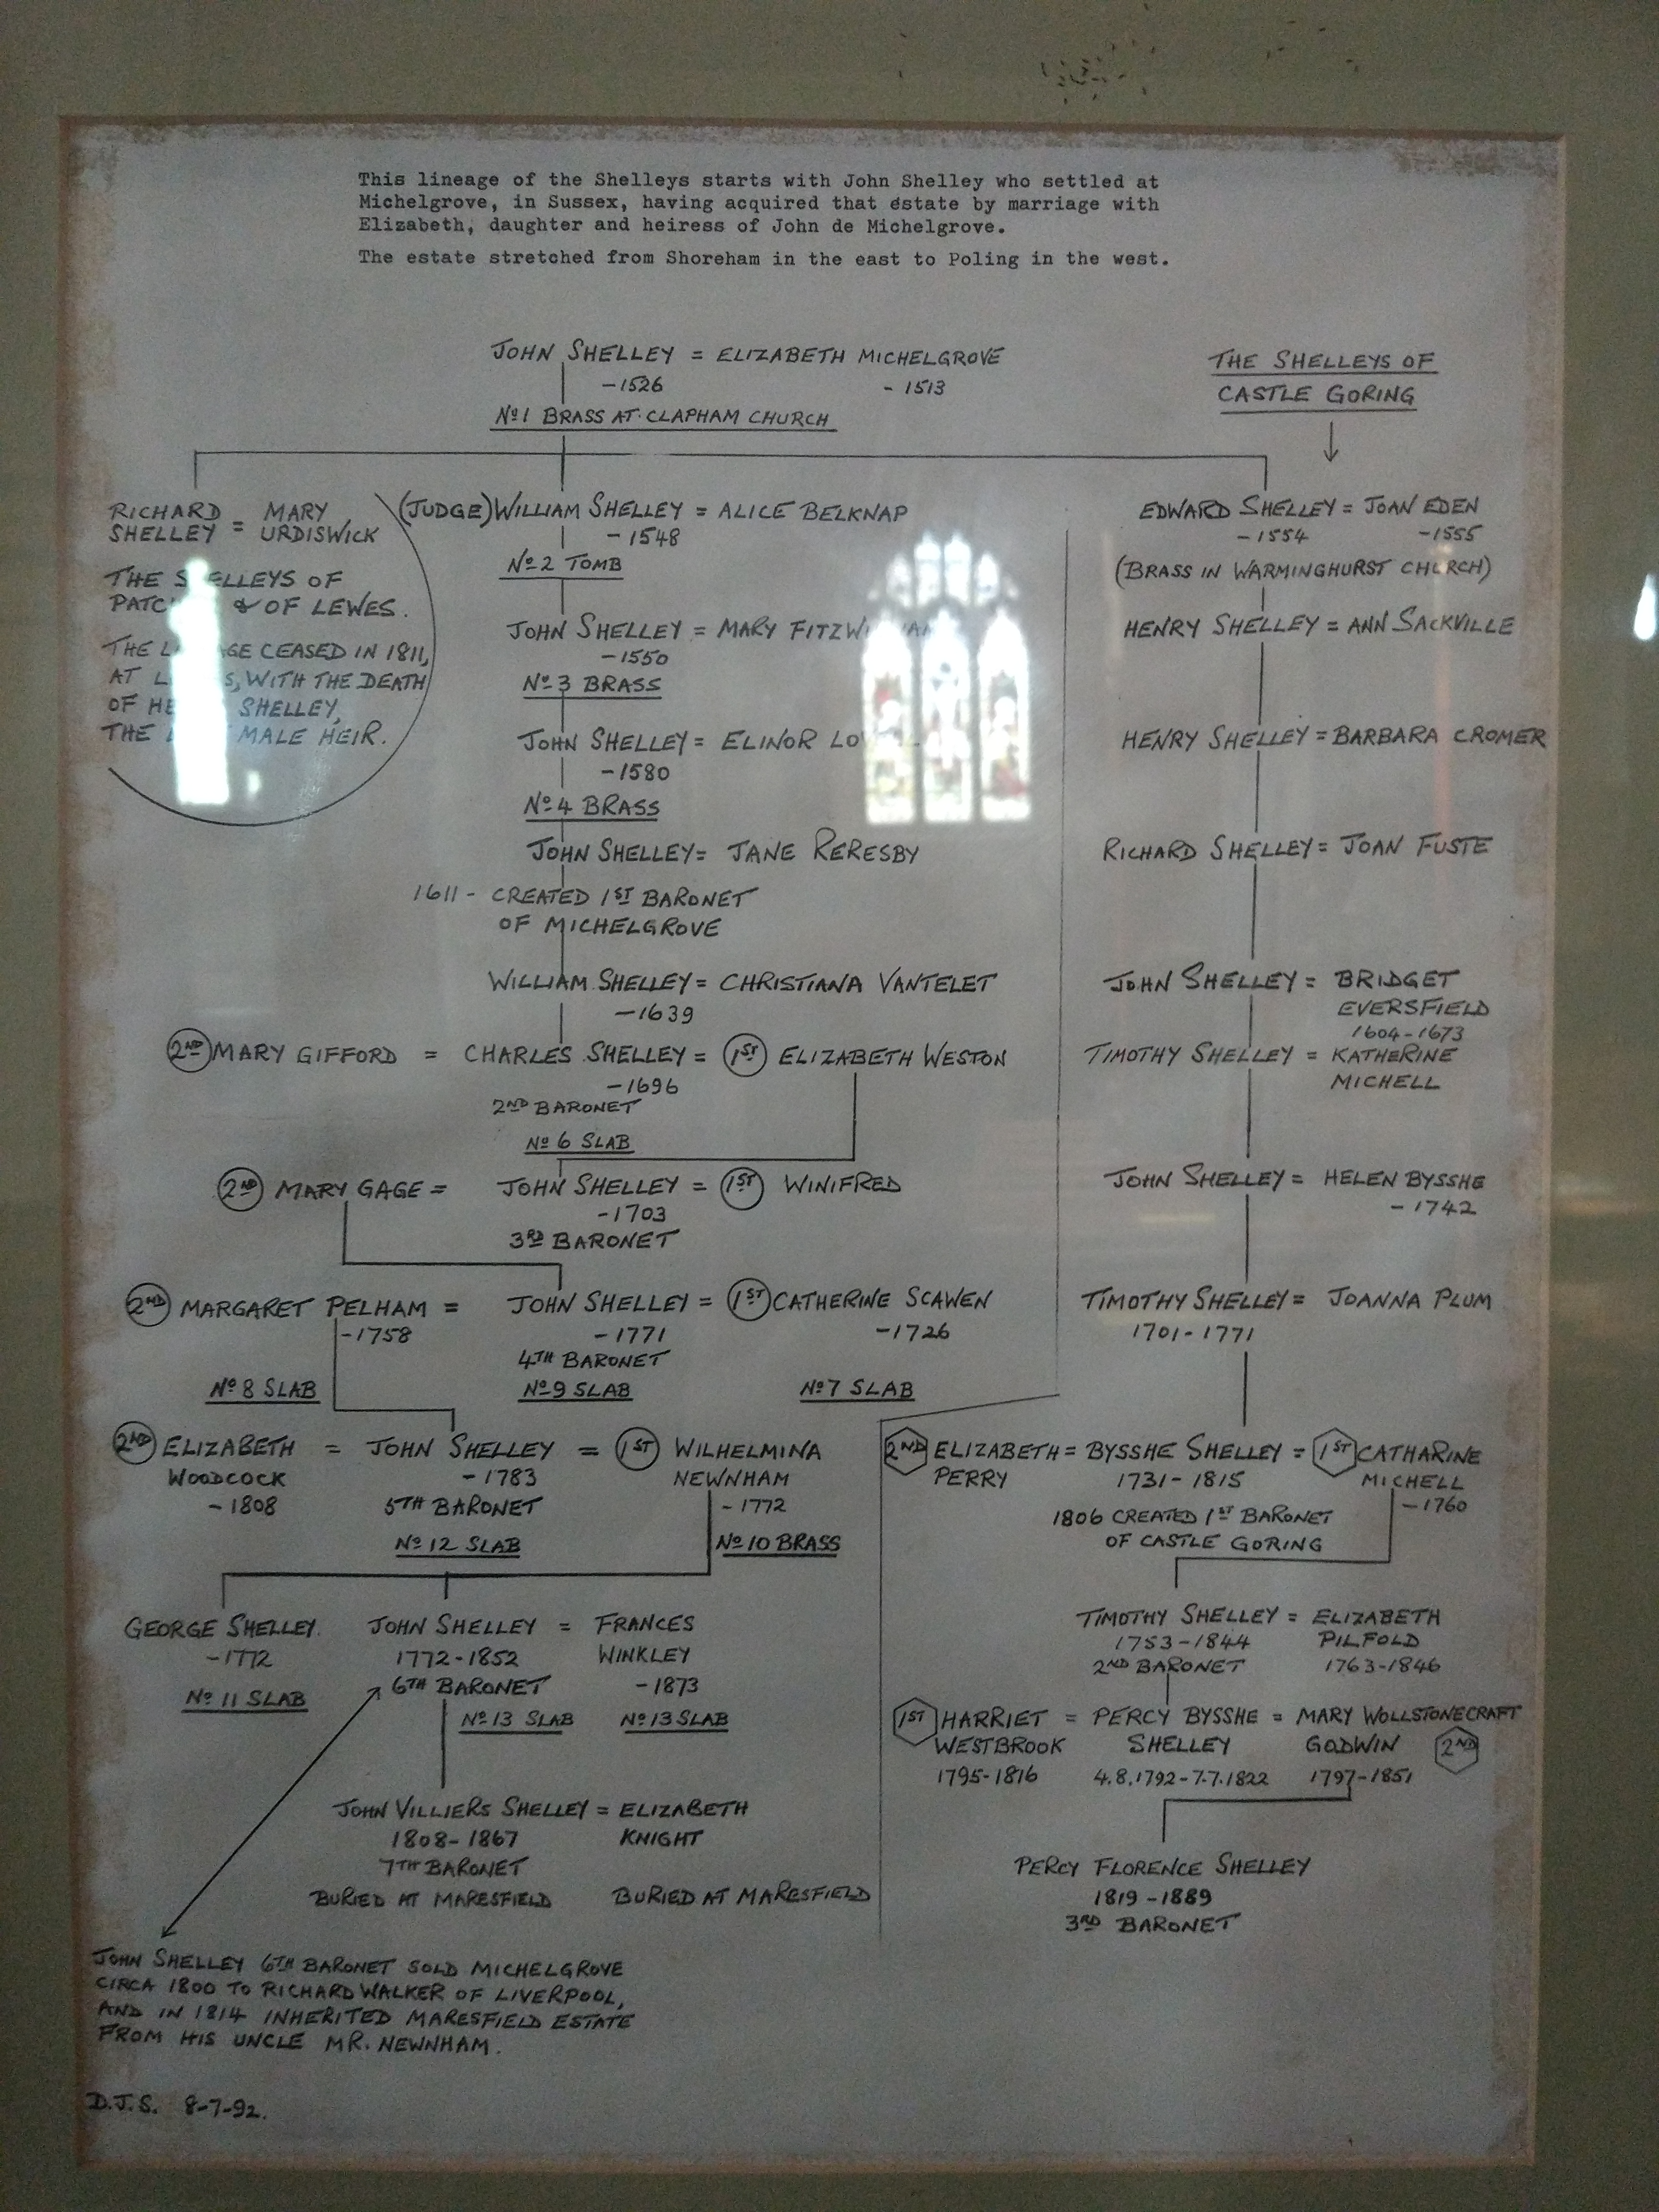 This lineage of the Shelleys starts with John Shelley who settled at
Michelgrove, in Sussex, having acquired that estate by marriage with
Elizabeth, daughter and heiress of John de Michelgrove.
The estate stretched from Shoreham in the east to Poling in the west.
JOHN SHELLEY = ELIZABETH MICHELGROVE
-1526 - 1513
No 1 BRASS AT CLAPHAM CHURCH
THE SHELLEYS OF
CASTLE GORING
RICHARD SHELLEY = MARY URDISWICK
THE SHELLEYS OF
& OF LEWES.
THE CEASED IN 1811,
AT WITH THE DEATH
OF SHELLEY,
THE MALE HEIR.
(JUDGE) WILLIAM SHELLEY = ALICE BELKNAP
-1548
No 2 TOMB
JOHN SHELLEY = MARY
-1550
No 3 BRASS
JOHN SHELLEY = ELINOR
-1580
No 4 BRASS
JOHN SHELLEY = JANE RERESBY
1611 - CREATED 1ST BARONET
OF MICHELGROVE
WILLIAM SHELLEY = CHRISTIANA VANTELET
-1639
2ND MARY GIFFORD = CHARLES SHELLEY = 1ST ELIZABETH WESTON
-1696
2ND BARONET
No 6 SLAB
2ND MARY GAGE = JOHN SHELLEY = 1ST WINIFRED
-1703
3RD BARONET
2ND MARGARET PELHAM = JOHN SHELLEY = 1ST CATHERINE SCAWEN
-1758 -1771 -1726
4TH BARONET
No 8 SLAB No 9 SLAB No 7 SLAB
2ND ELIZABETH = JOHN SHELLEY = 1ST WILHELMINA
WOODCOCK -1783 NEWNHAM
-1808 5TH BARONET -1772
No 12 SLAB No 10 BRASS
GEORGE SHELLEY JOHN SHELLEY = FRANCES
-1772 1772-1852 WINKLEY
6TH BARONET -1873
No 11 SLAB No 13 SLAB No 13 SLAB
JOHN VILLIERS SHELLEY = ELIZABETH
1808-1867 KNIGHT
7TH BARONET
BURIED AT MARESFIELD BURIED AT MARESFIELD
JOHN SHELLEY 6TH BARONET SOLD MICHELGROVE
CIRCA 1800 TO RICHARD WALKER OF LIVERPOOL,
AND IN 1814 INHERITED MARESFIELD ESTATE
FROM HIS UNCLE MR. NEWNHAM.
D.J.S. 8-7-92.
EDWARD SHELLEY = JOAN EDEN
-1554 -1555
(BRASS IN WARMINGHURST CHURCH)
HENRY SHELLEY = ANN SACKVILLE
HENRY SHELLEY = BARBARA CROMER
RICHARD SHELLEY = JOAN FUSTE
JOHN SHELLEY = BRIDGET
EVERSFIELD
1604-1673
TIMOTHY SHELLEY = KATHERINE
MICHELL
JOHN SHELLEY = HELEN BYSSHE
- 1742
TIMOTHY SHELLEY = JOANNA PLUM
1701-1771
2ND ELIZABETH = BYSSHE SHELLEY = 1ST CATHARINE
PERRY 1731-1815 MICHELL
-1760
1806 CREATED 1ST BARONET
OF CASTLE GORING
TIMOTHY SHELLEY = ELIZABETH
1753-1844 PILFOLD
2ND BARONET 1763-1846
1ST HARRIET = PERCY BYSSHE = MARY WOLLSTONECRAFT
WESTBROOK SHELLEY GODWIN 2ND
1795-1816 4.8.1792-7.7.1822 1797-1851
PERCY FLORENCE SHELLEY
1819-1889
3RD BARONET